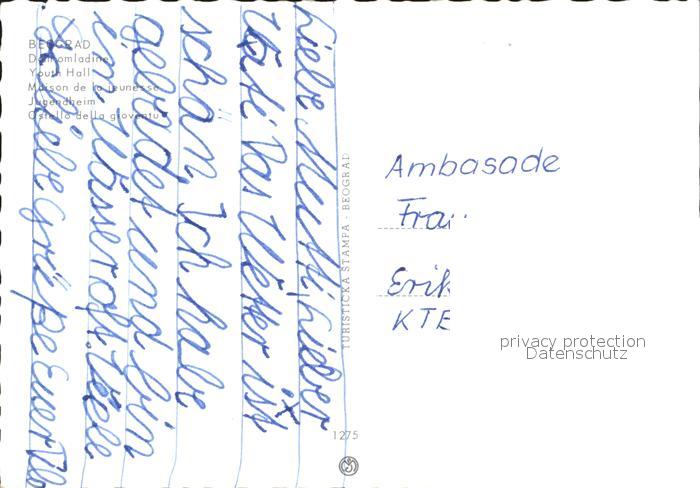 BEOGRAD
Dom omladine
Youth Hall
Maison de la jeunesse
Jugendheim
Ostello della gioventu
Liebe Mutti, Lieber
Vati! Das Wetter ist
schön. Ich habe
gebadet und bin
im Wasser oft. Viele
Liebe Grüße Euer
TURISTIČKA ŠTAMPA - BEOGRAD
1275
Ambasade
Erik
KTE
privacy protection
Datenschutz